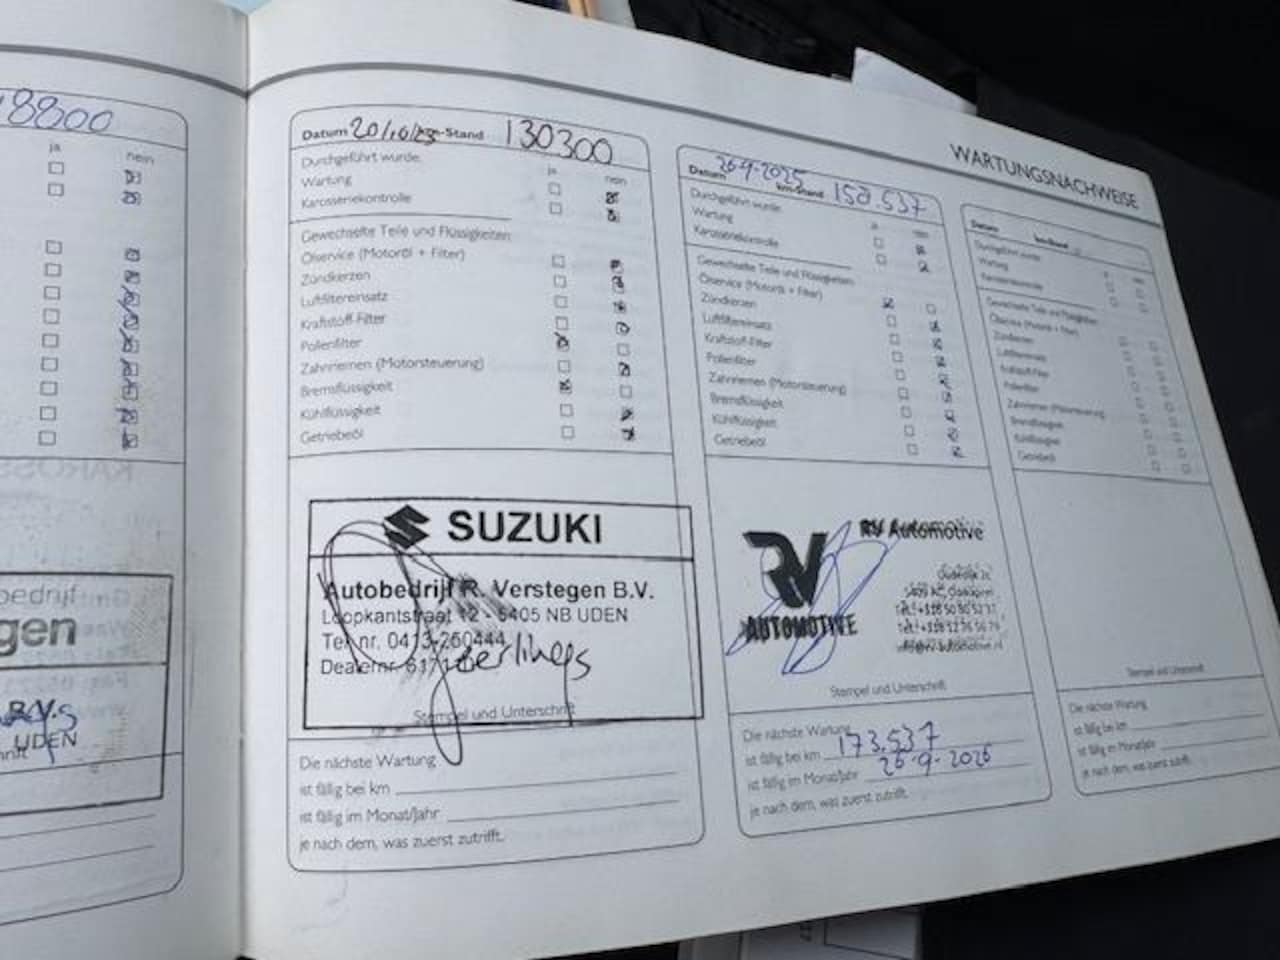 8800
ja nein
bedrijf
gen
B.V.
UDEN
WARTUNGSNACHWEISE
Datum 20/10/23 km-Stand 130300
Durchgeführt wurde: ja nein
Wartung
Karosseriekontrolle
Gewechselte Teile und Flüssigkeiten:
Ölservice (Motoröl + Filter)
Zündkerzen
Luftfiltereinsatz
Kraftstoff-Filter
Pollenfilter
Zahnriemen (Motorsteuerung)
Bremsflüssigkeit
Kühlflüssigkeit
Getriebeöl
SUZUKI
Autobedrijf R. Verstegen B.V.
Loopkantstraat 12 - 5405 NB UDEN
Tel. nr. 0413-260444
Dealernr. 6171
Stempel und Unterschrift
Die nächste Wartung
ist fällig bei km
ist fällig im Monat/Jahr
je nach dem, was zuerst zutrifft.
Datum 26-9-2025 km-Stand 158.537
Durchgeführt wurde: ja nein
Wartung
Karosseriekontrolle
Gewechselte Teile und Flüssigkeiten:
Ölservice (Motoröl + Filter)
Zündkerzen
Luftfiltereinsatz
Kraftstoff-Filter
Pollenfilter
Zahnriemen (Motorsteuerung)
Bremsflüssigkeit
Kühlflüssigkeit
Getriebeöl
RV Automotive
RV
AUTOMOTIVE
Stempel und Unterschrift
Die nächste Wartung
ist fällig bei km 173.537
ist fällig im Monat/Jahr 26-9-2026
je nach dem, was zuerst zutrifft.
Datum km-Stand
Durchgeführt wurde:
Wartung
Karosseriekontrolle
Gewechselte Teile und Flüssigkeiten:
Ölservice (Motoröl + Filter)
Zündkerzen
Luftfiltereinsatz
Kraftstoff-Filter
Pollenfilter
Zahnriemen (Motorsteuerung)
Bremsflüssigkeit
Kühlflüssigkeit
Getriebeöl
Stempel und Unterschrift
Die nächste Wartung
ist fällig bei km
ist fällig im Monat/Jahr
je nach dem, was zuerst zutrifft.